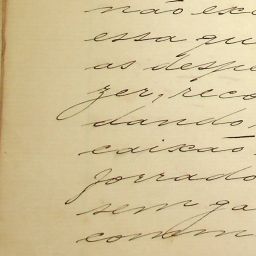 não exc
essa qu
as despe
zer, reco
dando
caixão
forrado
sem ga
comm